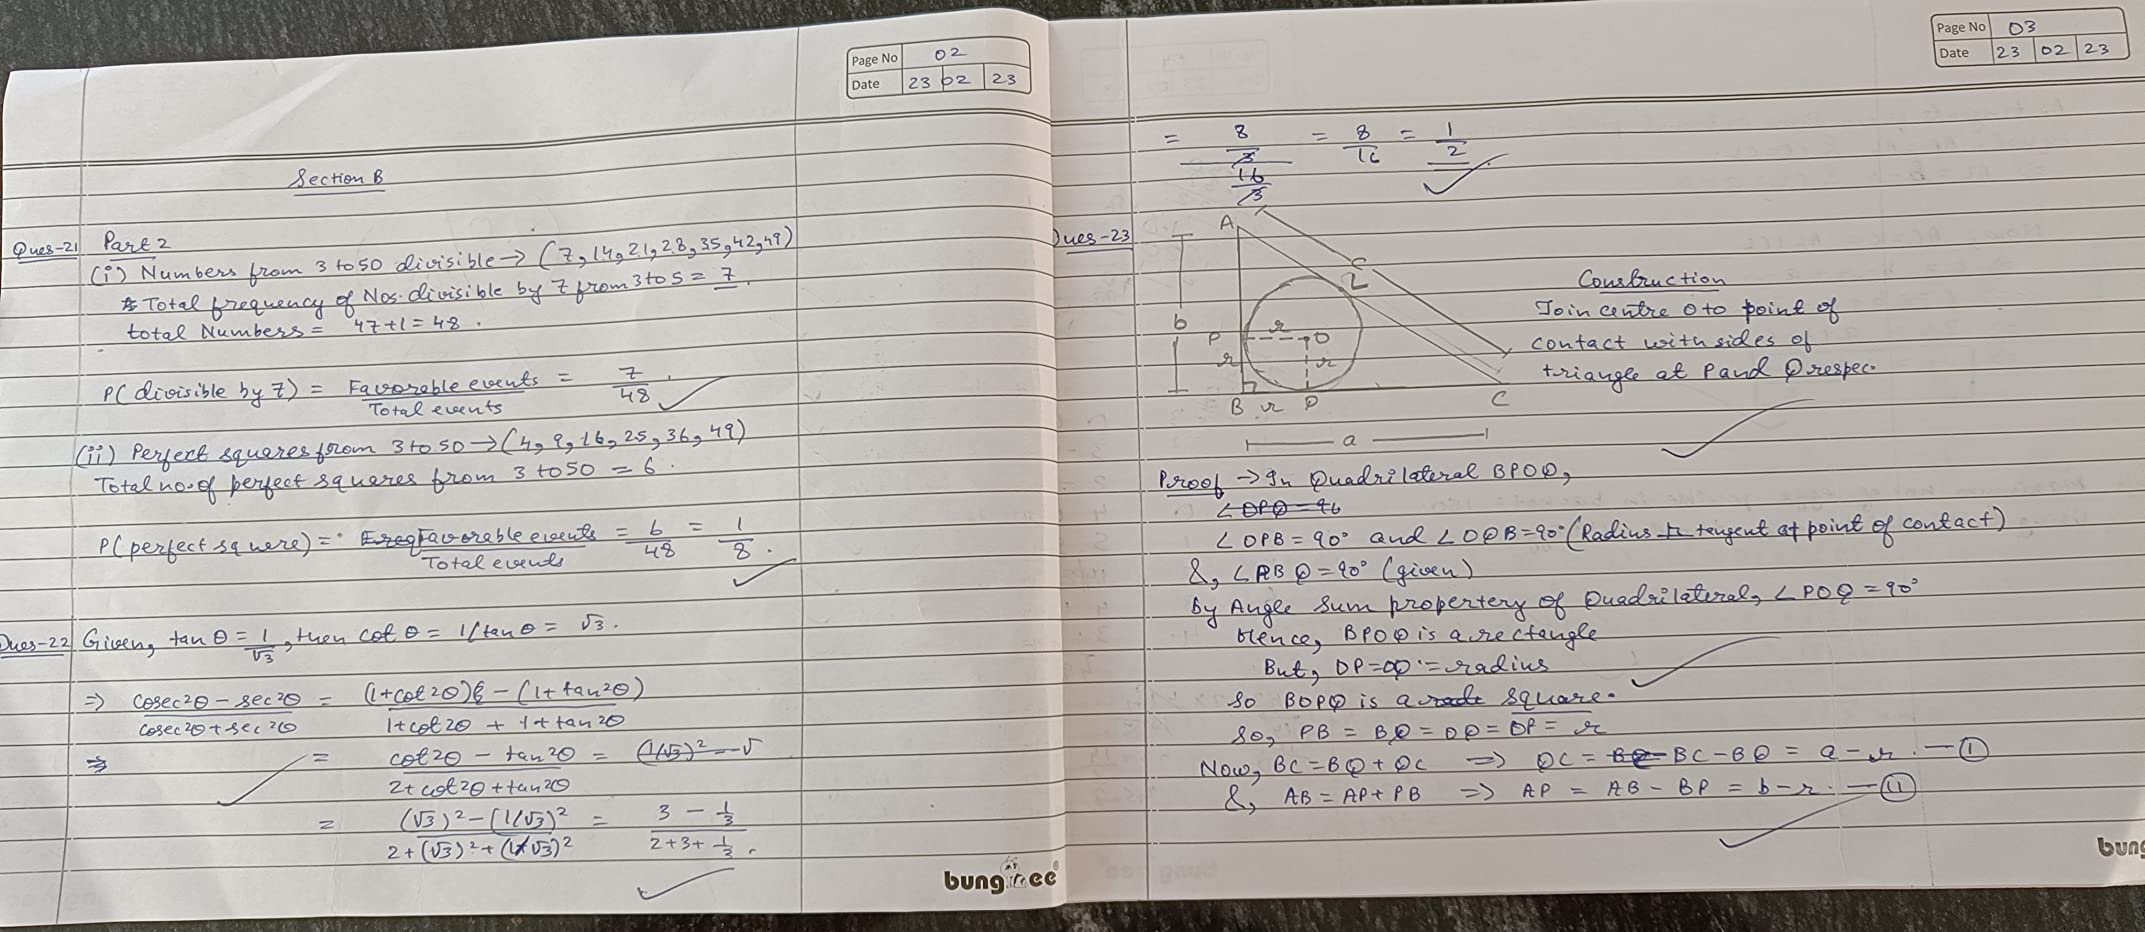 Page No 02
Date 23 02 23
Section B
Ques-21 Part 2
(i) Numbers from 3 to 50 divisible → (7, 14, 21, 28, 35, 42, 49)
Total frequency of Nos. divisible by 7 from 3 to 5 = 7.
total Numbers = 47+1 = 48.
P(divisible by 7) = Favorable events / Total events = 7/48.
(ii) Perfect squares from 3 to 50 → (4, 9, 16, 25, 36, 49)
Total no. of perfect squares from 3 to 50 = 6.
P(perfect square) = Favorable events / Total events = 6/48 = 1/8.
Ques-22 Given, tan θ = 1/√3, then cot θ = 1/tan θ = √3.
⇒ cosec²θ – sec²θ / cosec²θ + sec²θ = (1+cot²θ) – (1+tan²θ) / 1+cot²θ + 1+tan²θ
⇒ = cot²θ – tan²θ / 2+cot²θ+tan²θ = (1/√3)² – √
= (√3)² – (1/√3)² / 2+(√3)²+(1/√3)² = 3 – 1/3 / 2+3+1/3.
bungree
Page No 03
Date 23 02 23
= 8/3 / 16/3 = 8/16 = 1/2
Ques-23
A
c
L
b
P r O
r r
B r Q C
a
Construction
Join centre O to point of
contact with sides of
triangle at P and Q respec.
Proof → In Quadrilateral BPOQ,
∠OPQ = 90
∠OPB = 90° and ∠OQB = 90° (Radius to tangent at point of contact)
&, ∠PBQ = 90° (given)
By Angle Sum propertery of Quadrilateral, ∠POQ = 90°
Hence, BPOQ is a rectangle
But, OP = OQ = radius
So BOPQ is a square.
So, PB = BQ = OQ = OP = r
Now, BC = BQ + QC ⇒ QC = BC – BQ = a – r. — (I)
&, AB = AP + PB ⇒ AP = AB – BP = b – r. — (II)
bung